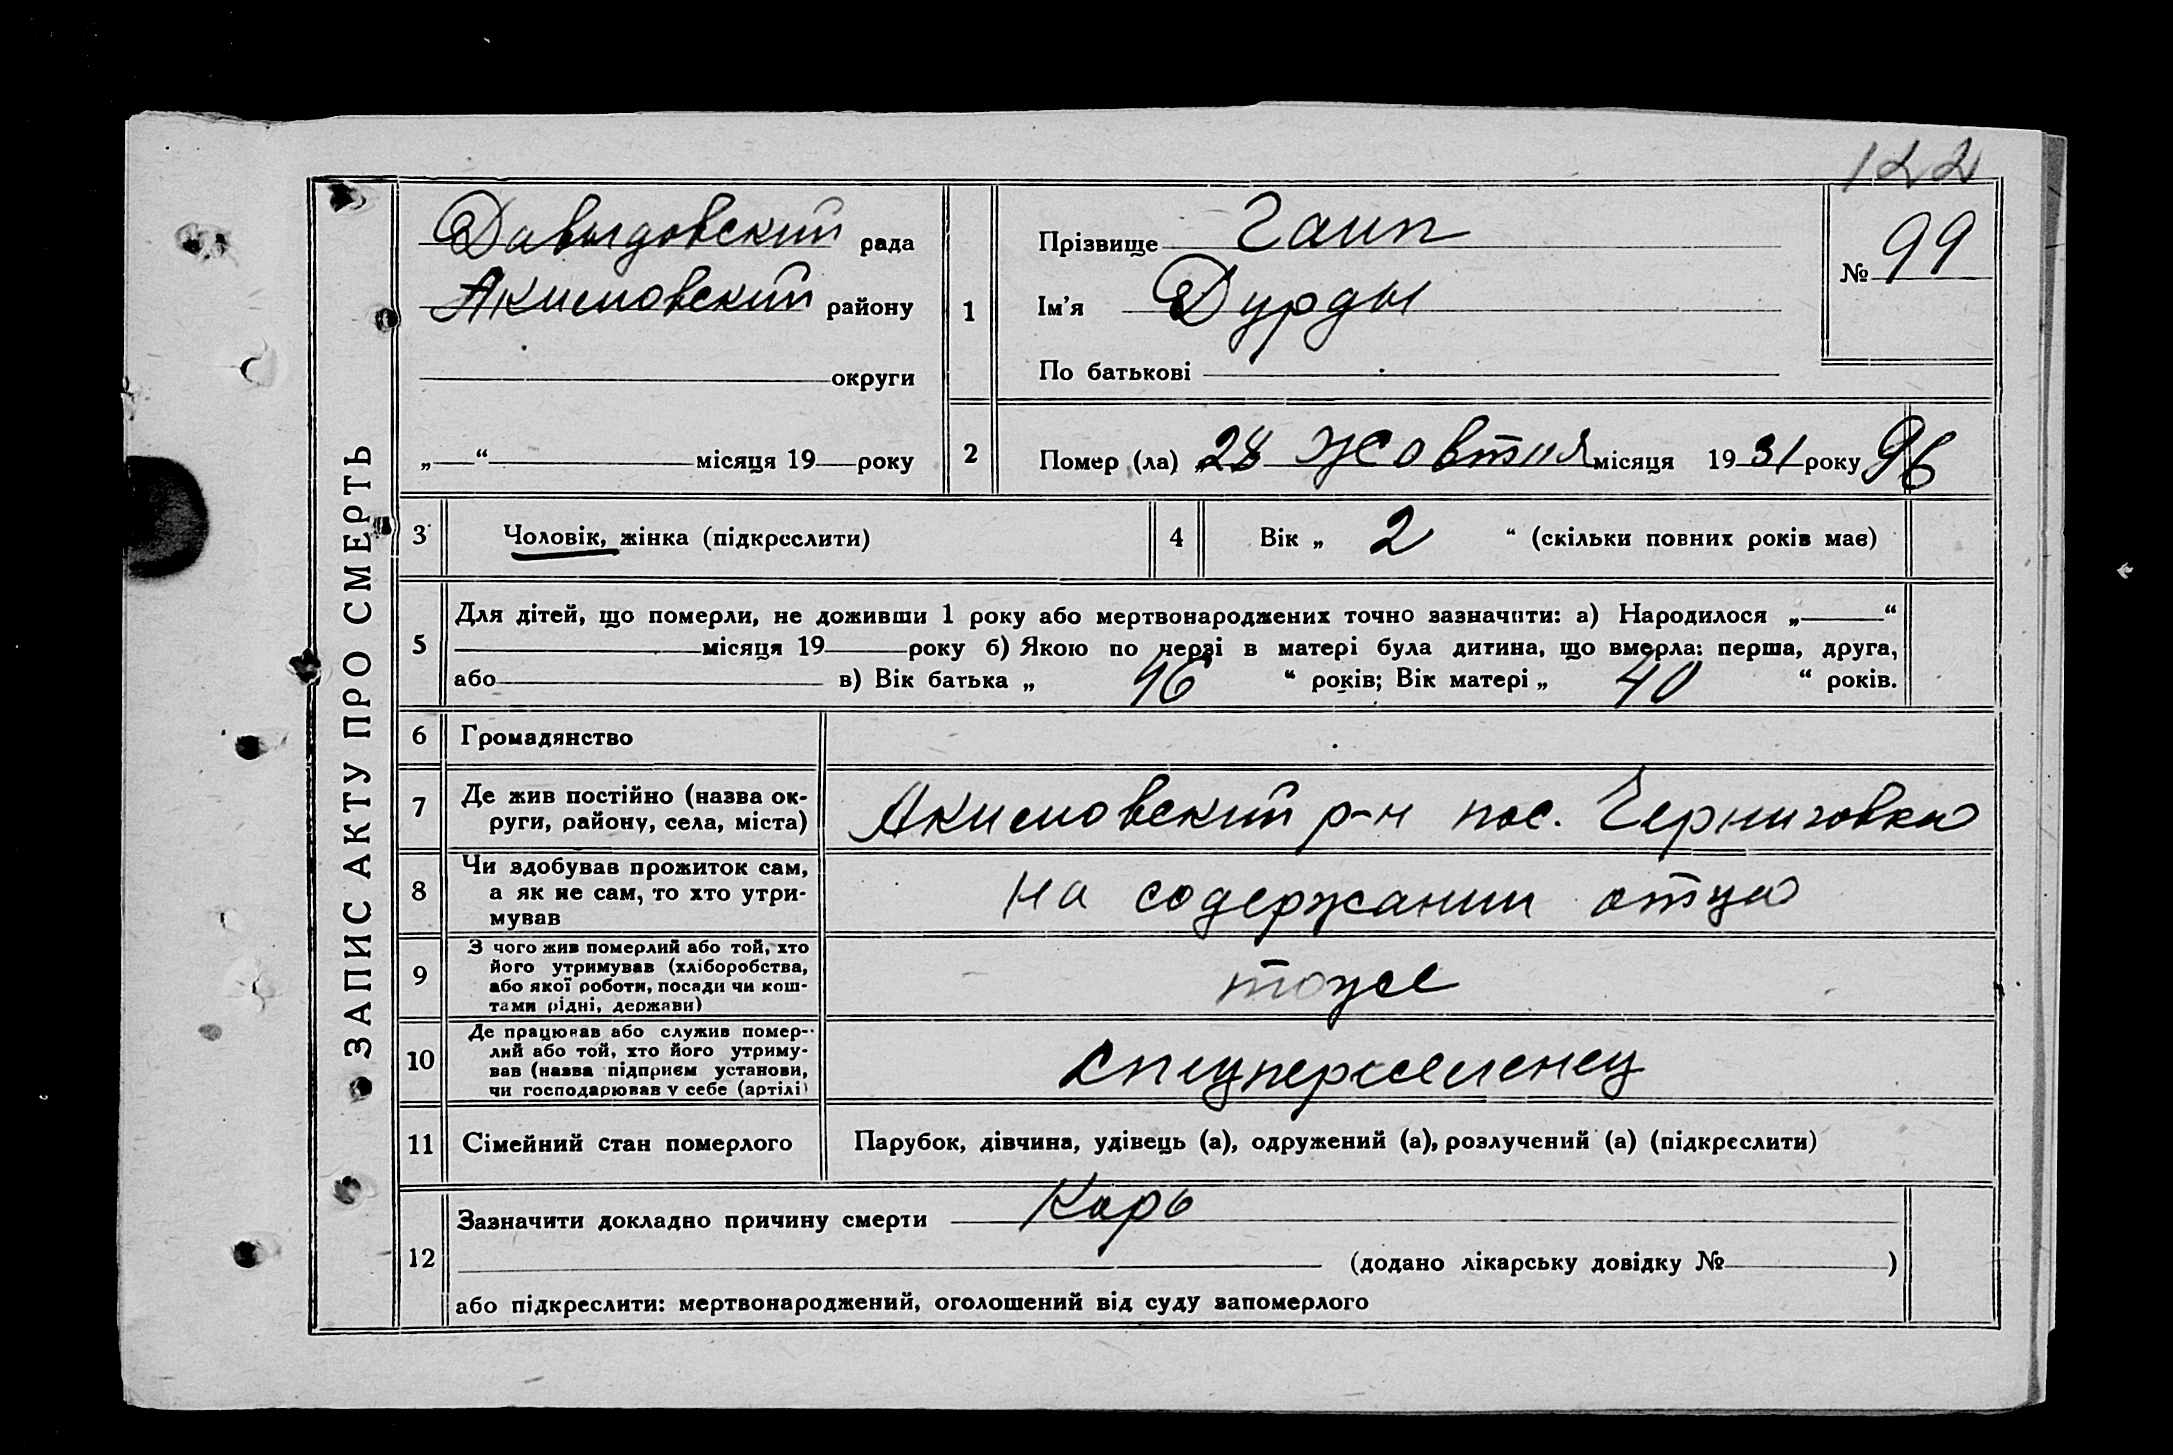 122
ЗАПИС АКТУ ПРО СМЕРТЬ
Давыдовский рада
Акимовский району
округи
„ “ місяця 19 року
1
Прізвище Гаип
Ім'я Дурды
По батькові
№ 99
2
Помер (ла) 28 жовтня місяця 1931 року 96
3
Чоловік, жінка (підкреслити)
4
Вік „ 2 “ (скільки повних років має)
5
Для дітей, що померли, не доживши 1 року або мертвонароджених точно зазначити: а) Народилося „ “
місяця 19 року б) Якою по черзі в матері була дитина, що вмерла: перша, друга,
або в) Вік батька „ 46 “ років; Вік матері „ 40 “ років.
6
Громадянство
7
Де жив постійно (назва ок-
руги, району, села, міста)
Акимовский р-н пос. Черниговка
8
Чи здобував прожиток сам,
а як не сам, то хто утри-
мував
на содержании отца
9
З чого жив померлий або той, хто
його утримував (хліборобства,
або якої роботи, посади чи кош-
тами рідні, держави)
тоже
10
Де працював або служив помер-
лий або той, хто його утриму-
вав (назва підприєм установи,
чи господарював у себе (артілі)
спецпереселенец
11
Сімейний стан померлого
Парубок, дівчина, удівець (а), одружений (а), розлучений (а) (підкреслити)
12
Зазначити докладно причину смерти Корь
(додано лікарську довідку № )
або підкреслити: мертвонароджений, оголошений від суду запомерлого